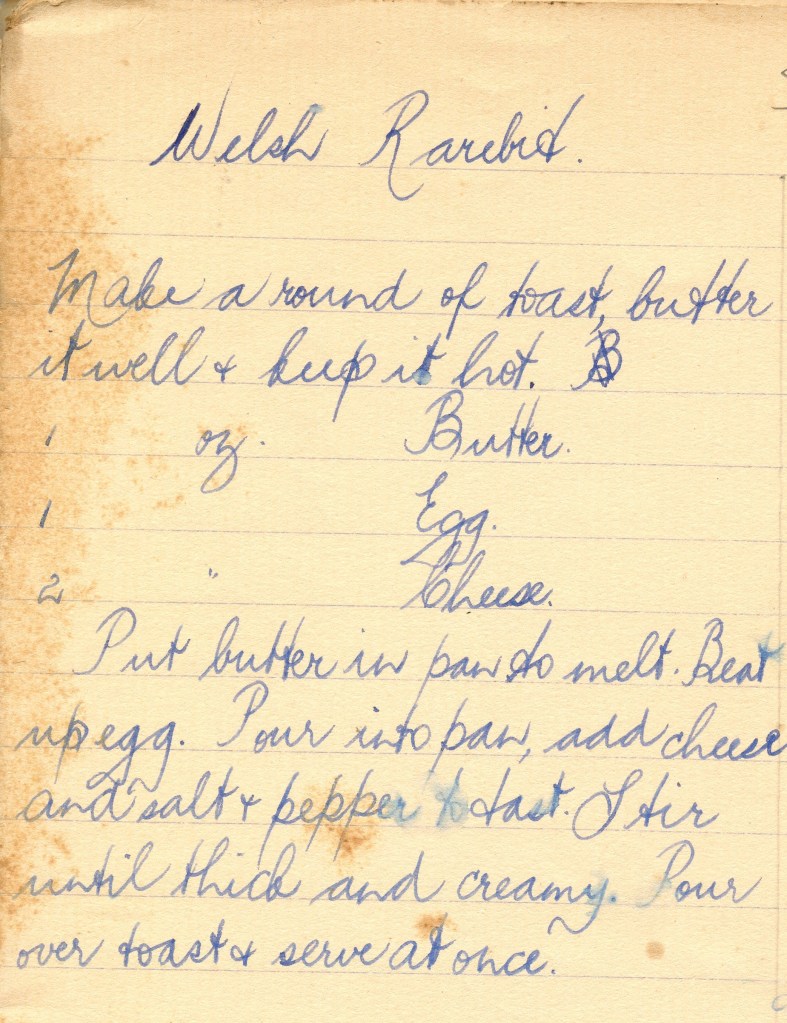 Welsh Rarebit.
Make a round of toast, butter
it well & keep it hot.
1 oz. Butter.
1 Egg.
2 " Cheese.
Put butter in pan to melt. Beat
up egg. Pour into pan, add cheese
and salt & pepper to tast. Stir
until thick and creamy. Pour
over toast & serve at once.